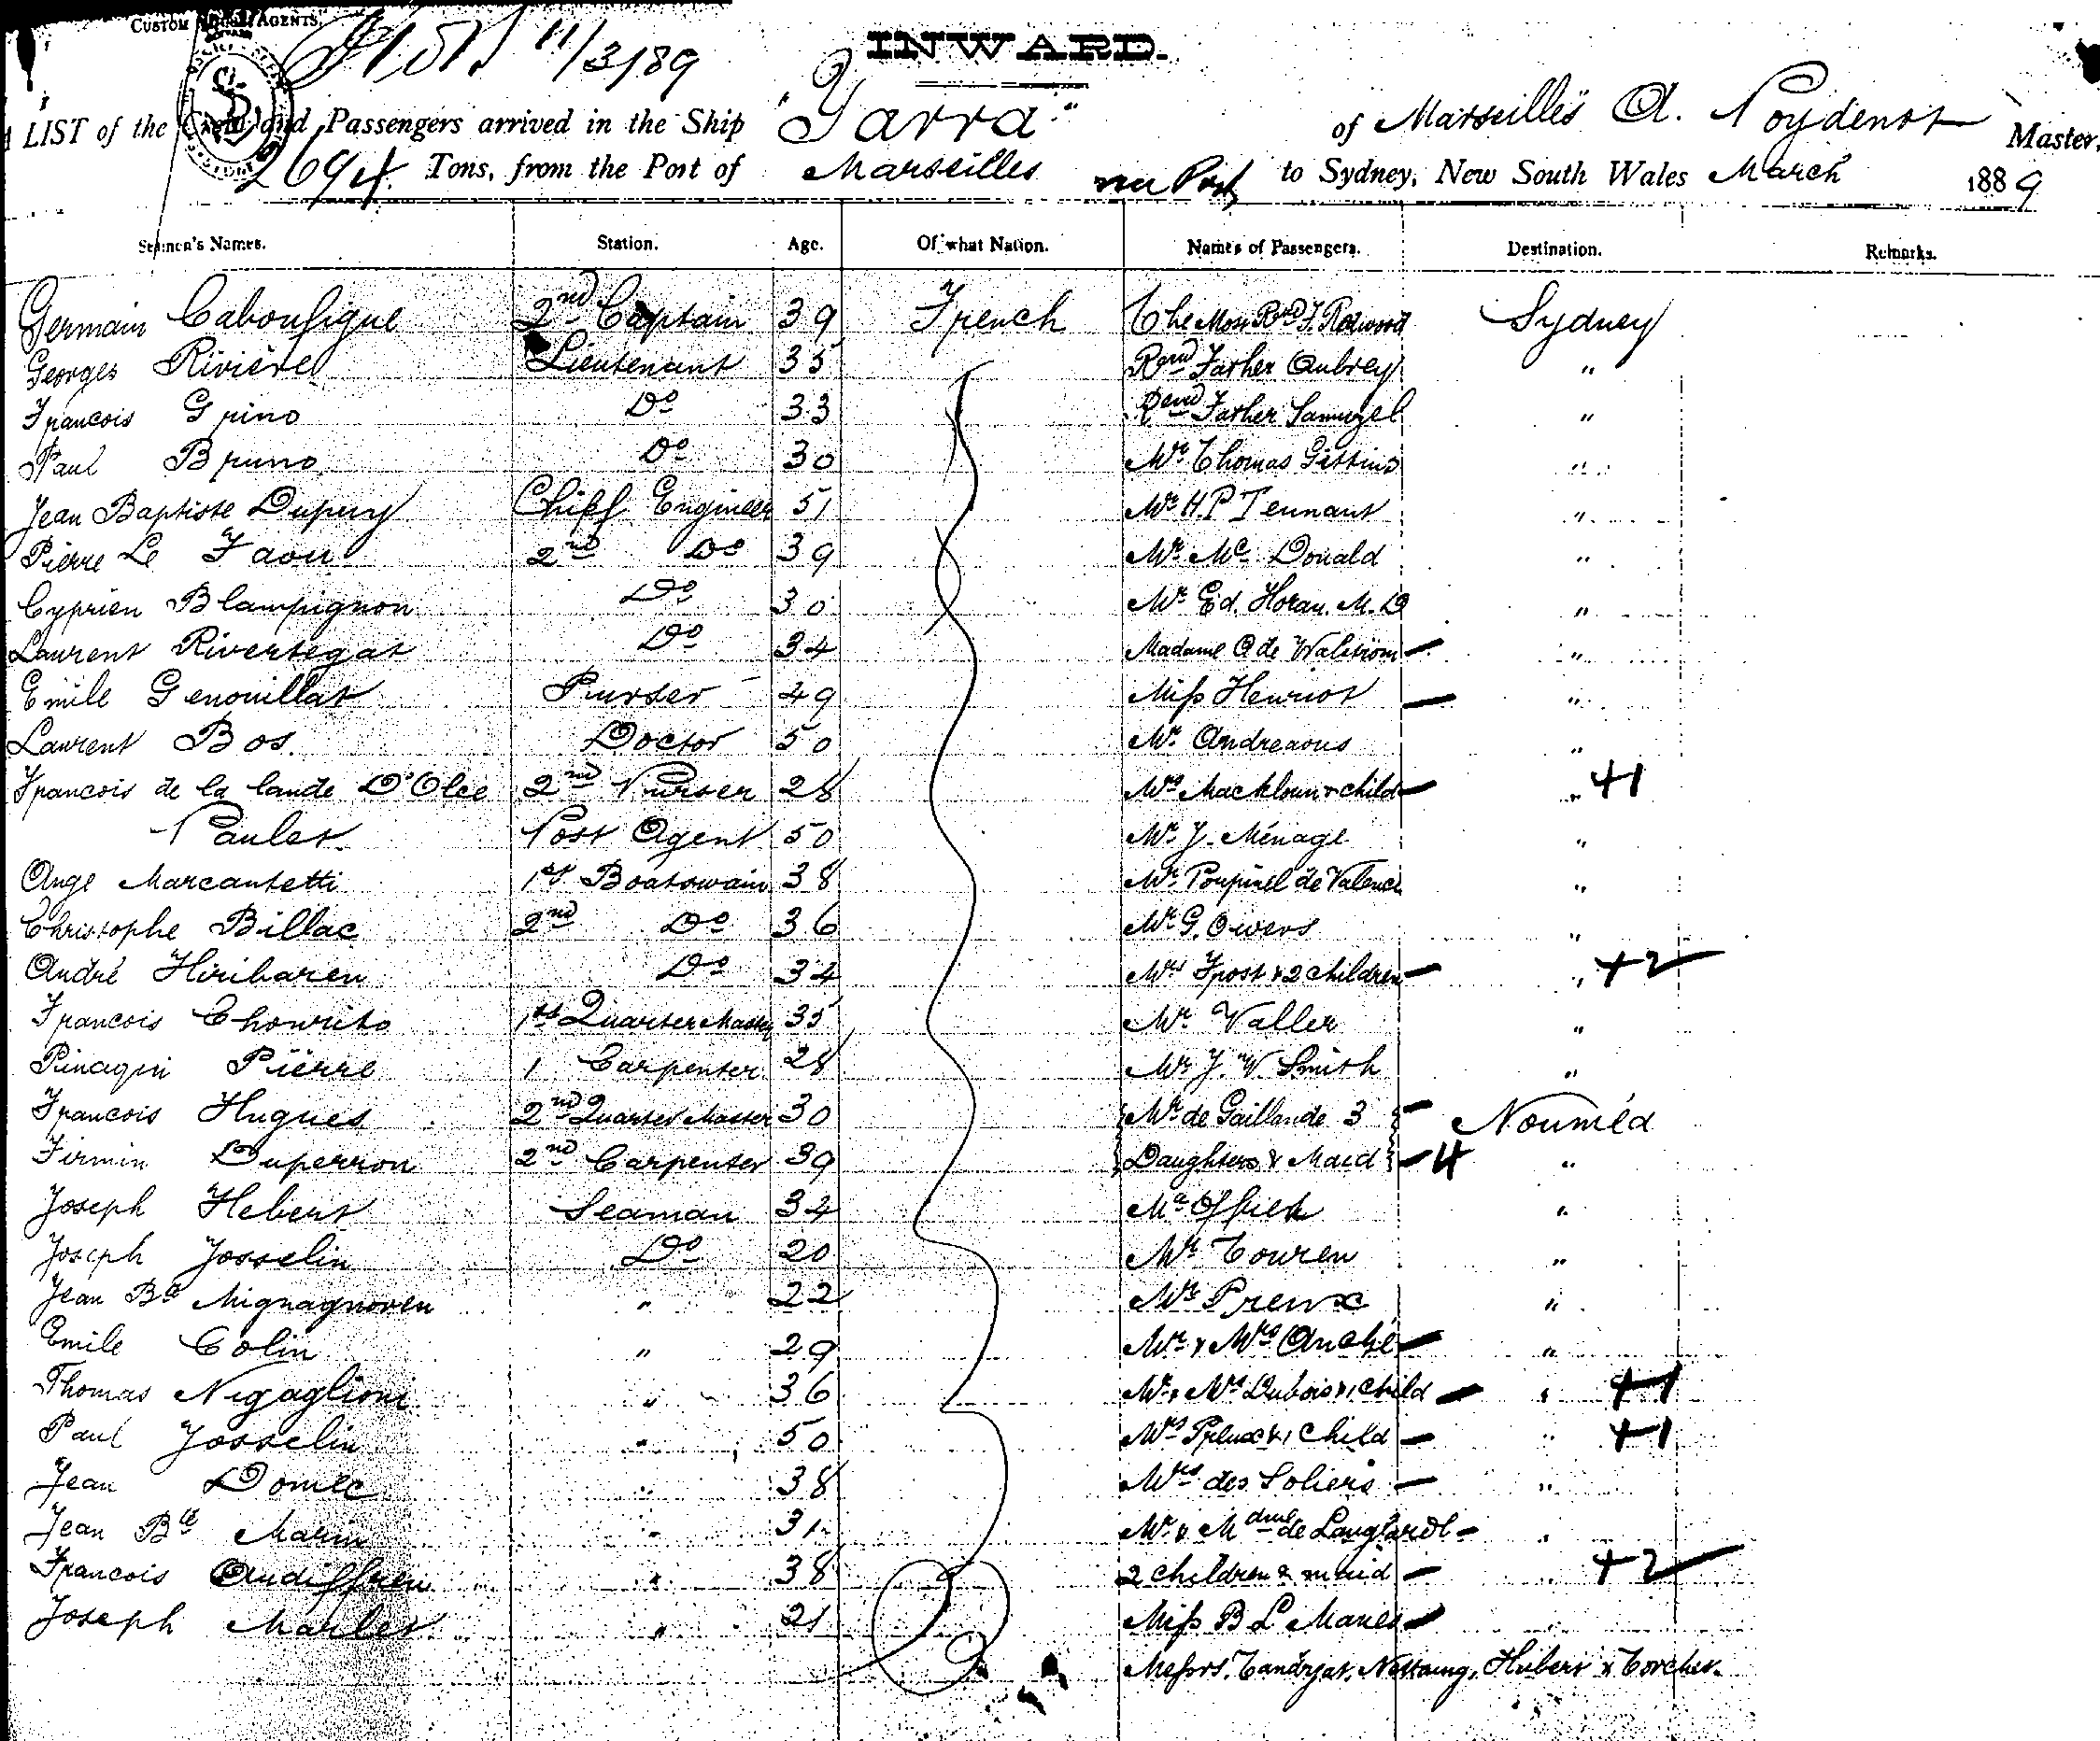 CUSTOM HOUSE AGENTS.
11/3/89
INWARD.
A LIST of the Crew and Passengers arrived in the Ship "Yarra" of Marseilles A. Poydenot Master,
2694 Tons, from the Port of Marseilles to Sydney, New South Wales March 1889
Seamen's Names. Station. Age. Of what Nation. Names of Passengers. Destination. Remarks.
Germain Caboufigue 2nd Captain 39 French The Most Revd F. Redwood Sydney
Georges Rivière Lieutenant 35 Revd Father Aubrey "
Francois Grino Do 33 Revd Father "
Paul Bruno Do 30 Mr Thomas Gittins "
Jean Baptiste Dupuy Chief Engineer 51 Mr H. P Tennant "
Pierre Le Faou 2nd Do 39 Mr Mc Donald "
Cyprien Blampignon Do 30 Mr Ed. Horan. M. D "
Laurent Rivertegat Do 34 Madame de "
Emile Genouillat Purser 49 Miss Henriot "
Laurent Bos. Doctor 50 Mr. "
Francois de la lande D'Olce 2nd Purser 28 Mrs & child " +1
Paulet Post Agent 50 Mr. J. Ménage "
Ange Marcantetti 1st Boatswain 38 Mr. Poupinel de Valencé "
Christophe Billac 2nd Do 36 Mr G. Owers "
André Hiribaren Do 34 Mrs Frost & 2 children " +2
Francois Chourito 1st Quarter Master 35 Mr Valler "
Pinaqui Pierre 1 Carpenter 28 Mr J. W. Smith "
Francois Hugues 2nd Quarter Master 30 Mr de Gaillande 3 Nouméa
Firmin Duperron 2nd Carpenter 39 Daughters & Maid 4 "
Joseph Hebert Seaman 34 "
Joseph Josselin Do 20 Mr Touren "
Jean Bte " 22 Mr Preux "
Emile Colin " 29 Mr & Mrs "
Thomas Nigaglioni " 36 Mr & Mrs Dubois & 1 child " +1
Paul Josselin " 50 Mrs Preux & 1 Child " +1
Jean Domec " 38 Mrs des Soliers "
Jean Bte Marin " 31 Mr & Mdme de "
Francois Audiffren " 38 2 children & maid " +2
Joseph " 21 Miss B L "
Messrs. Hubert &